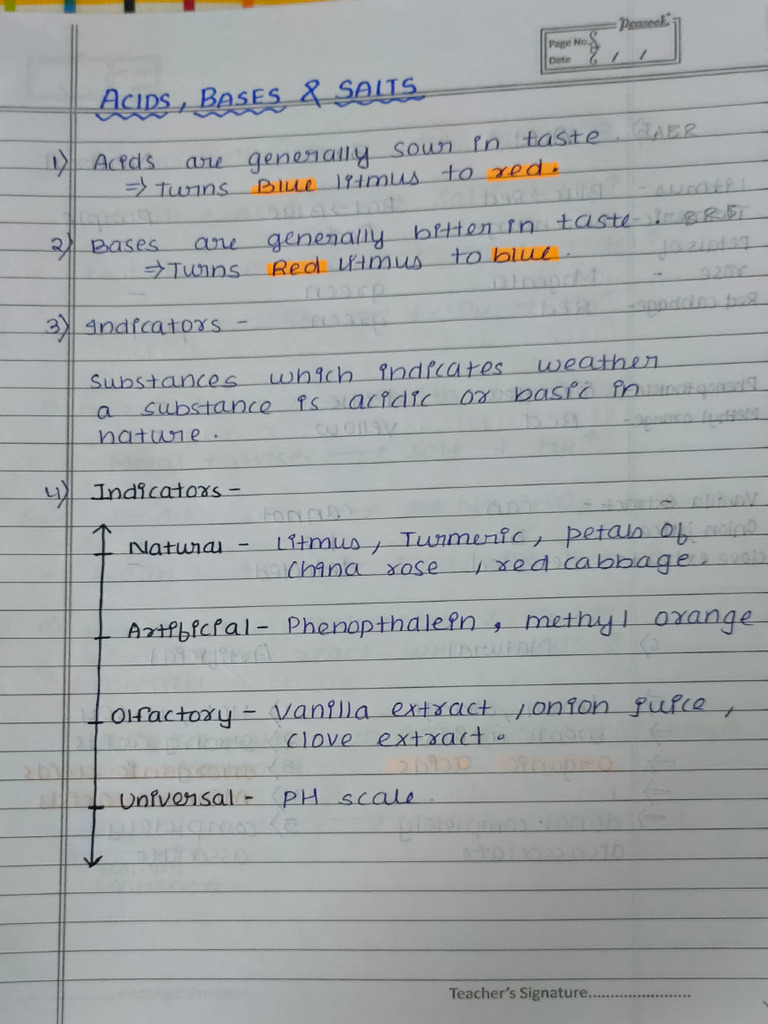 Peacock
Page No.
Date / /
ACIDS, BASES & SALTS
1) Acids are generally sour in taste. ABR
⇒ Turns Blue litmus to red.
2) Bases are generally bitter in taste. BRB
⇒ Turns Red litmus to blue.
3) Indicators -
Substances which indicates weather
a substance is acidic or basic in
nature.
4) Indicators -
Natural - Litmus, Turmeric, petals of
China rose, red cabbage.
Artificial - Phenopthalein, methyl orange
Olfactory - Vanilla extract, onion juice,
clove extract.
Universal - PH scale.
Teacher's Signature........................